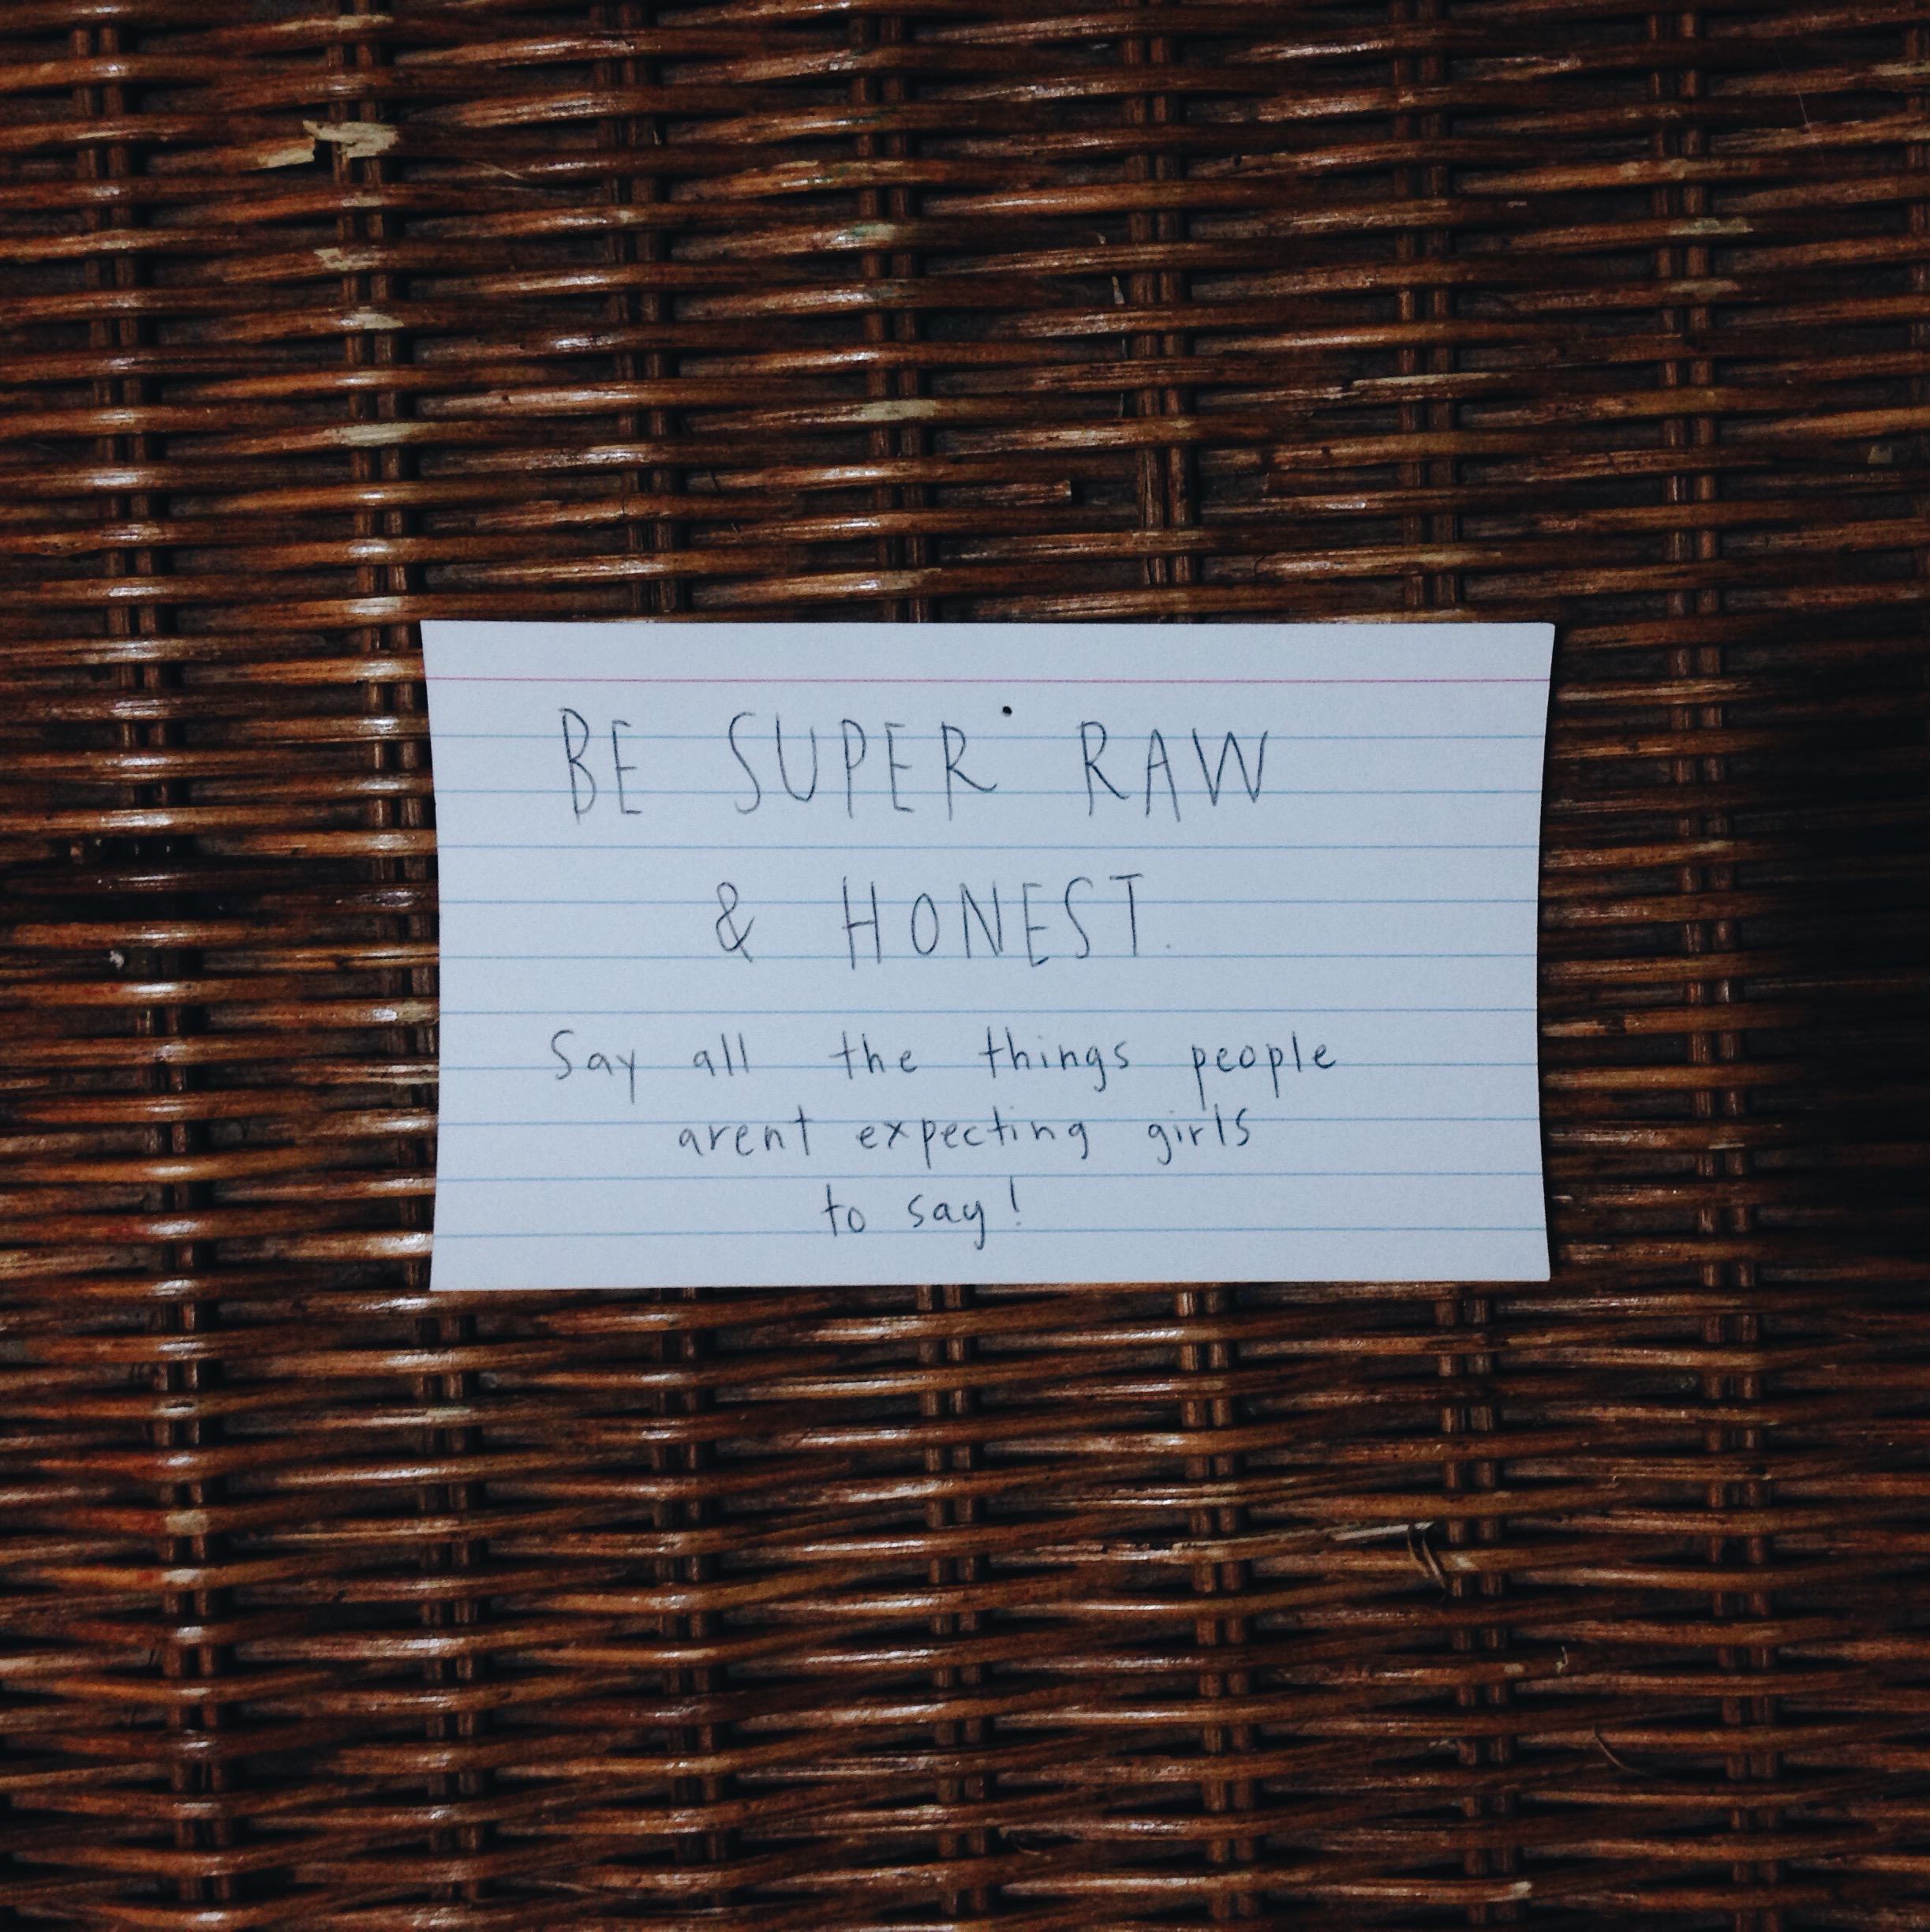 BE SUPER RAW
& HONEST.
Say all the things people
arent expecting girls
to say!